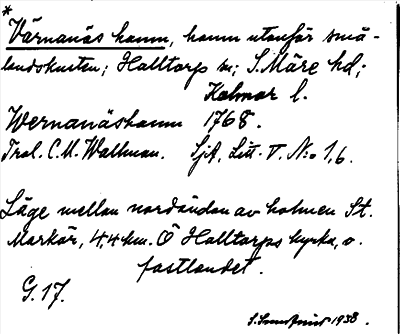 *
Värnanäs hamn, hamn utanför små-
landskusten; Halltorp sn; S. Möre hd;
Kalmar l.
Wernanäshamn 1768.
Trol. C. M. Wallman. SjA, Litt. V. No 1,6.
Läge mellan nordändan av holmen St.
Markör, 4,4 km. Ö Halltorps kyrka, o.
fastlandet.
G. 17.
1938.